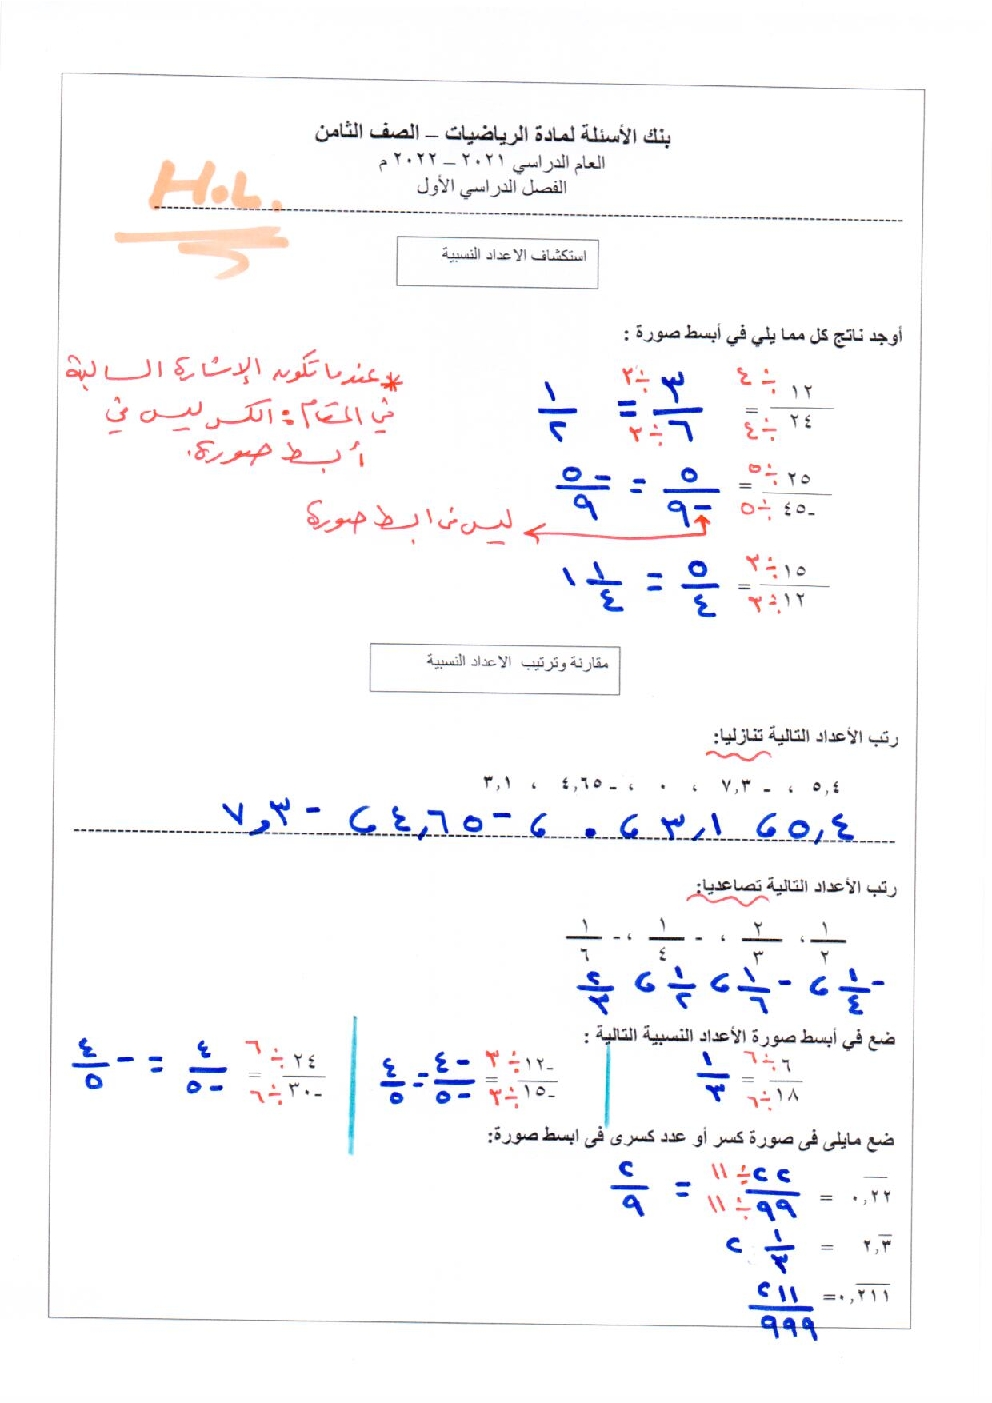 بنك الأسئلة لمادة الرياضيات – الصف الثامن
العام الدراسي ٢٠٢١ – ٢٠٢٢ م
الفصل الدراسي الأول
H.L.
استكشاف الاعداد النسبية
أوجد ناتج كل مما يلي في أبسط صورة :
* عندما تكون الإشارة السالبة
في المقام : الكسر ليس في
أبسط صورة.
١٢/٢٤ = (÷٤ / ÷٤) ٣/٦ (÷٣ / ÷٣) = ١/٢
٢٥/-٤٥ = (÷٥ / ÷٥) ٥/-٩ = -٥/٩
ليس في ابسط صورة
١٥/١٢ = (÷٣ / ÷٣) ٥/٤ = ١ ١/٤
مقارنة وترتيب الاعداد النسبية
رتب الأعداد التالية تنازليا:
٥,٤ ، -٧,٣ ، ٠ ، -٤,٦٥ ، ٣,١
٥,٤ ، ٣,١ ، ٠ ، -٤,٦٥ ، -٧,٣
رتب الأعداد التالية تصاعديا:
١/٢ ، ٢/٣ ، -١/٤ ، -١/٦
-١/٤ ، -١/٦ ، ١/٢ ، ٢/٣
ضع في أبسط صورة الأعداد النسبية التالية :
٦/١٨ = (÷٦ / ÷٦) ١/٣
-١٢/-١٥ = (÷٣ / ÷٣) -٤/-٥ = ٤/٥
٢٤/-٣٠ = (÷٦ / ÷٦) ٤/-٥ = -٤/٥
ضع مايلى فى صورة كسر أو عدد كسرى فى ابسط صورة:
٠,٢٢̅ = ٢٢/٩٩ (÷١١ / ÷١١) = ٢/٩
٢,٣̅ = ٢ ١/٣
٠,٢١١̅ = ٢١١/٩٩٩